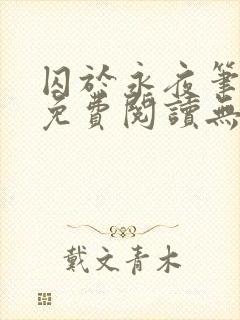 囚於永夜筆
免費閱讀無
戴文青木